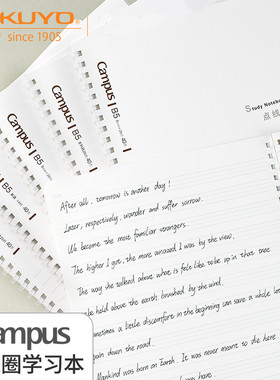 KUYO
since 1905
Campus B5
Campus B5
Campus B5
Study Noteboo
点线
After all, tomorrow is another day!
Later, respectively, wander and suffer sorrow.
We become the most familiar strangers.
The higher I got, the more amazed I was by the view.
The way she talked about what is feels like to be up in that tree
be held above the earth brushed by the wind.
Sometimes a little discomfort in the beginning can save a whole l
pain down the road.
Mankind was born on Earth. It was never meant to die here.
ampus
圈学习本